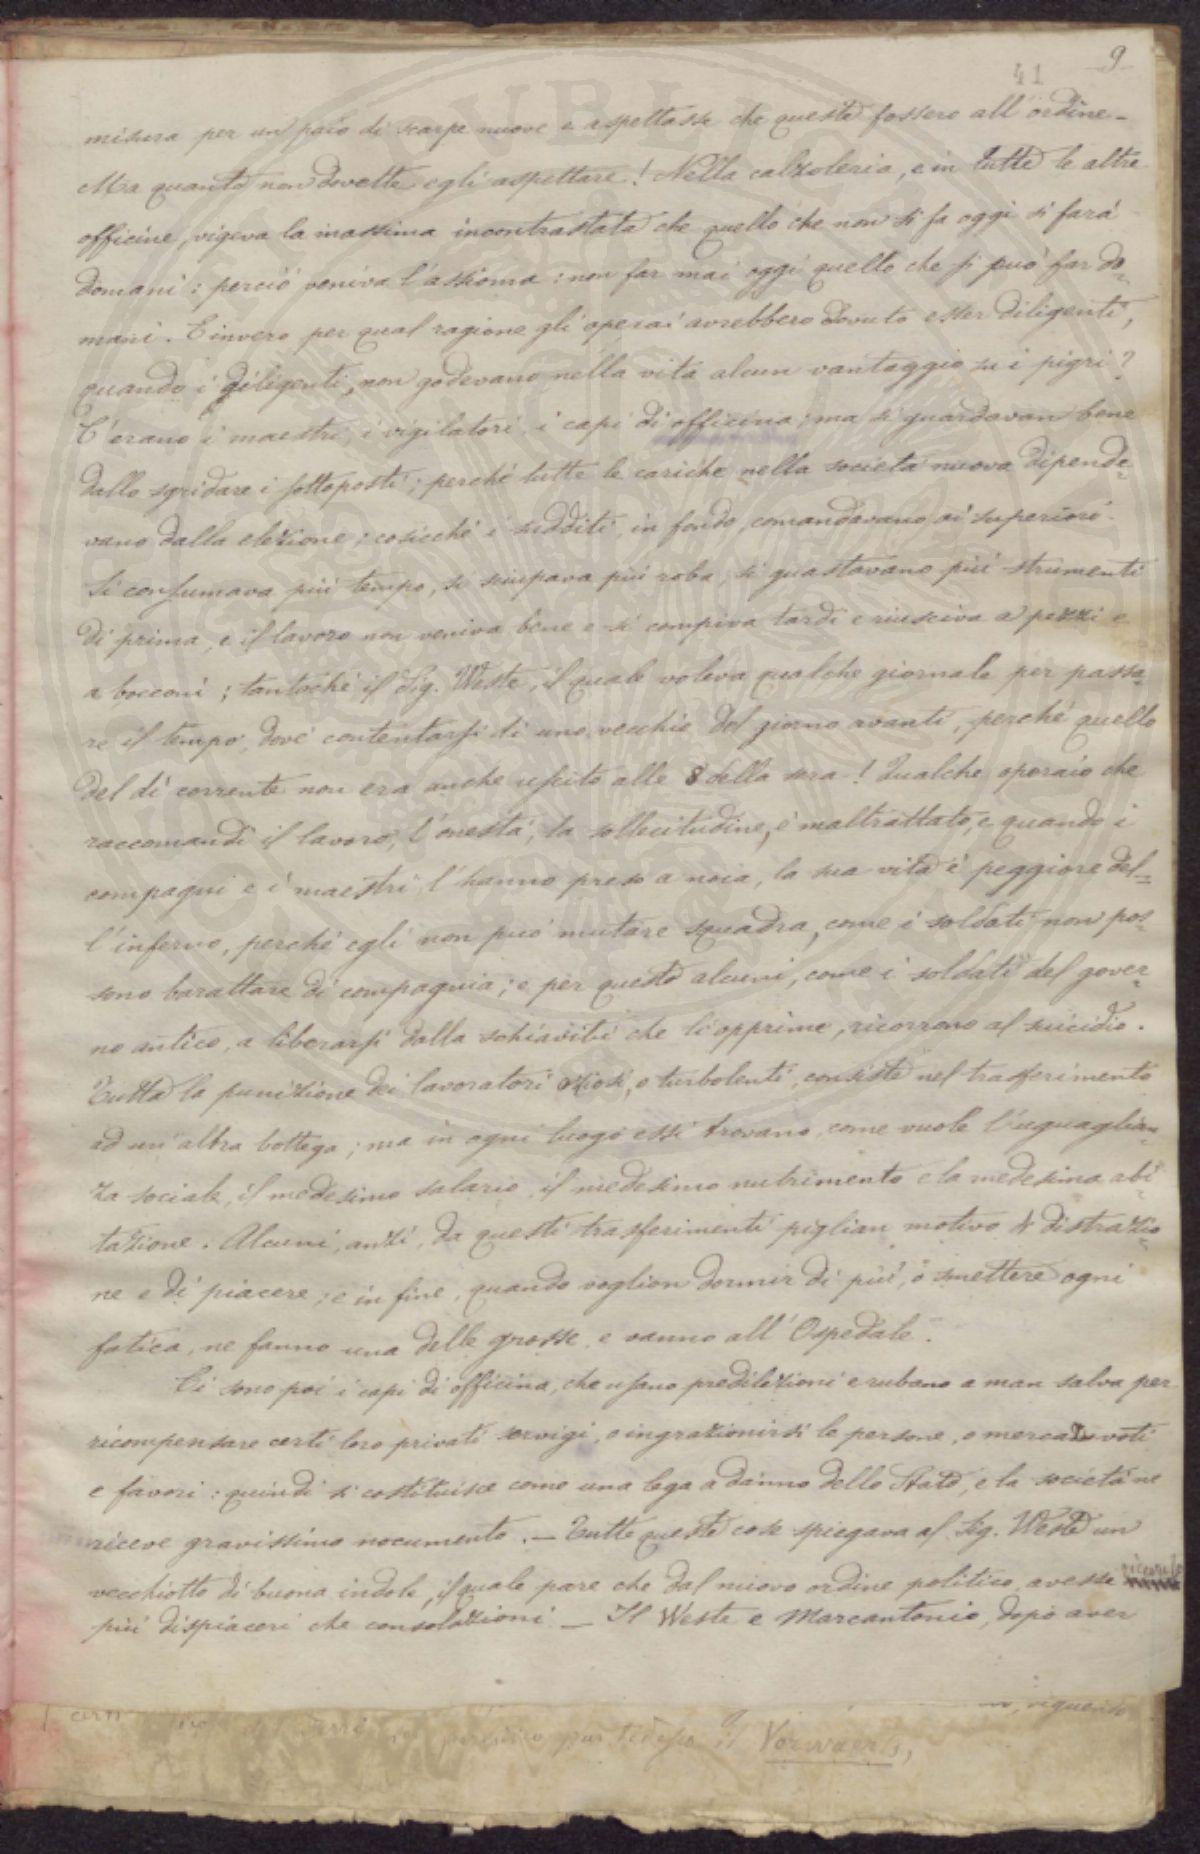 9
41
misura per un paio di scarpe nuove e aspettasse che queste fossero all'ordine.
Ma quanto non dovette egli aspettare! Nella calzoleria, e in tutte le altre
officine, vigeva la massima incontrastata che quello che non si fa oggi si farà
domani: perciò veniva l'assioma: non far mai oggi quello che si può far do-
mani. E invero per qual ragione gli operai avrebbero dovuto esser diligenti,
quando i diligenti, non godevano nella vita alcun vantaggio su i pigri?
C'erano i maestri, i vigilatori, i capi di officina; ma si guardavan bene
dallo sgridare i sottoposti; perché tutte le cariche nella società nuova dipende-
vano dalla elezione; cosicché i sudditi, in fondo, comandavano ai superiori.
Si consumava più tempo, si sciupava più roba, si guastavano più strumenti
di prima, e il lavoro non veniva bene e si compiva tardi e riusciva a pezzi e
a bocconi; tantoché il Sig. Weste, il quale voleva qualche giornale per passa-
re il tempo, dové contentarsi di uno vecchio del giorno avanti, perché quello
del dì corrente non era anche uscito alle 8 della sera! Qualche operaio che
raccomandi il lavoro, l'onestà, la sollecitudine, è maltrattato, e quando i
compagni e i maestri l'hanno preso a noia, la sua vita è peggiore del-
l'inferno, perché egli non può mutare squadra, come i soldati non pos-
sono barattare di compagnia; e per questo alcuni, come i soldati del gover-
no antico, a liberarsi dalla schiavitù che li opprime, ricorrono al suicidio.
Tutta la punizione dei lavoratori oziosi, o turbolenti, consiste nel trasferimento
ad un'altra bottega; ma in ogni luogo essi trovano, come vuole l'uguaglian-
za sociale, il medesimo salario, il medesimo nutrimento e la medesima abi-
tazione. Alcuni, anzi, da questi trasferimenti piglian motivo di distrazio-
ne e di piacere; e in fine, quando voglion dormir di più, o smettere ogni
fatica, ne fanno una delle grosse e vanno all'Ospedale.
Ci sono poi i capi di officina, che usano predilezioni e rubano a man salva per
ricompensare certi loro privati servigi, o ingrazionirsi le persone, o mercar voti
e favori: quindi si costituisce come una lega a danno dello Stato, e la società ne
riceve gravissimo nocumento. — Tutte queste cose spiegava al Sig. Weste un
vecchiotto di buona indole, il quale pare che dal nuovo ordine politico avesse ricevuto
più dispiaceri che consolazioni. — Il Weste e Marcantonio, dopo aver
il Vorwaerts,